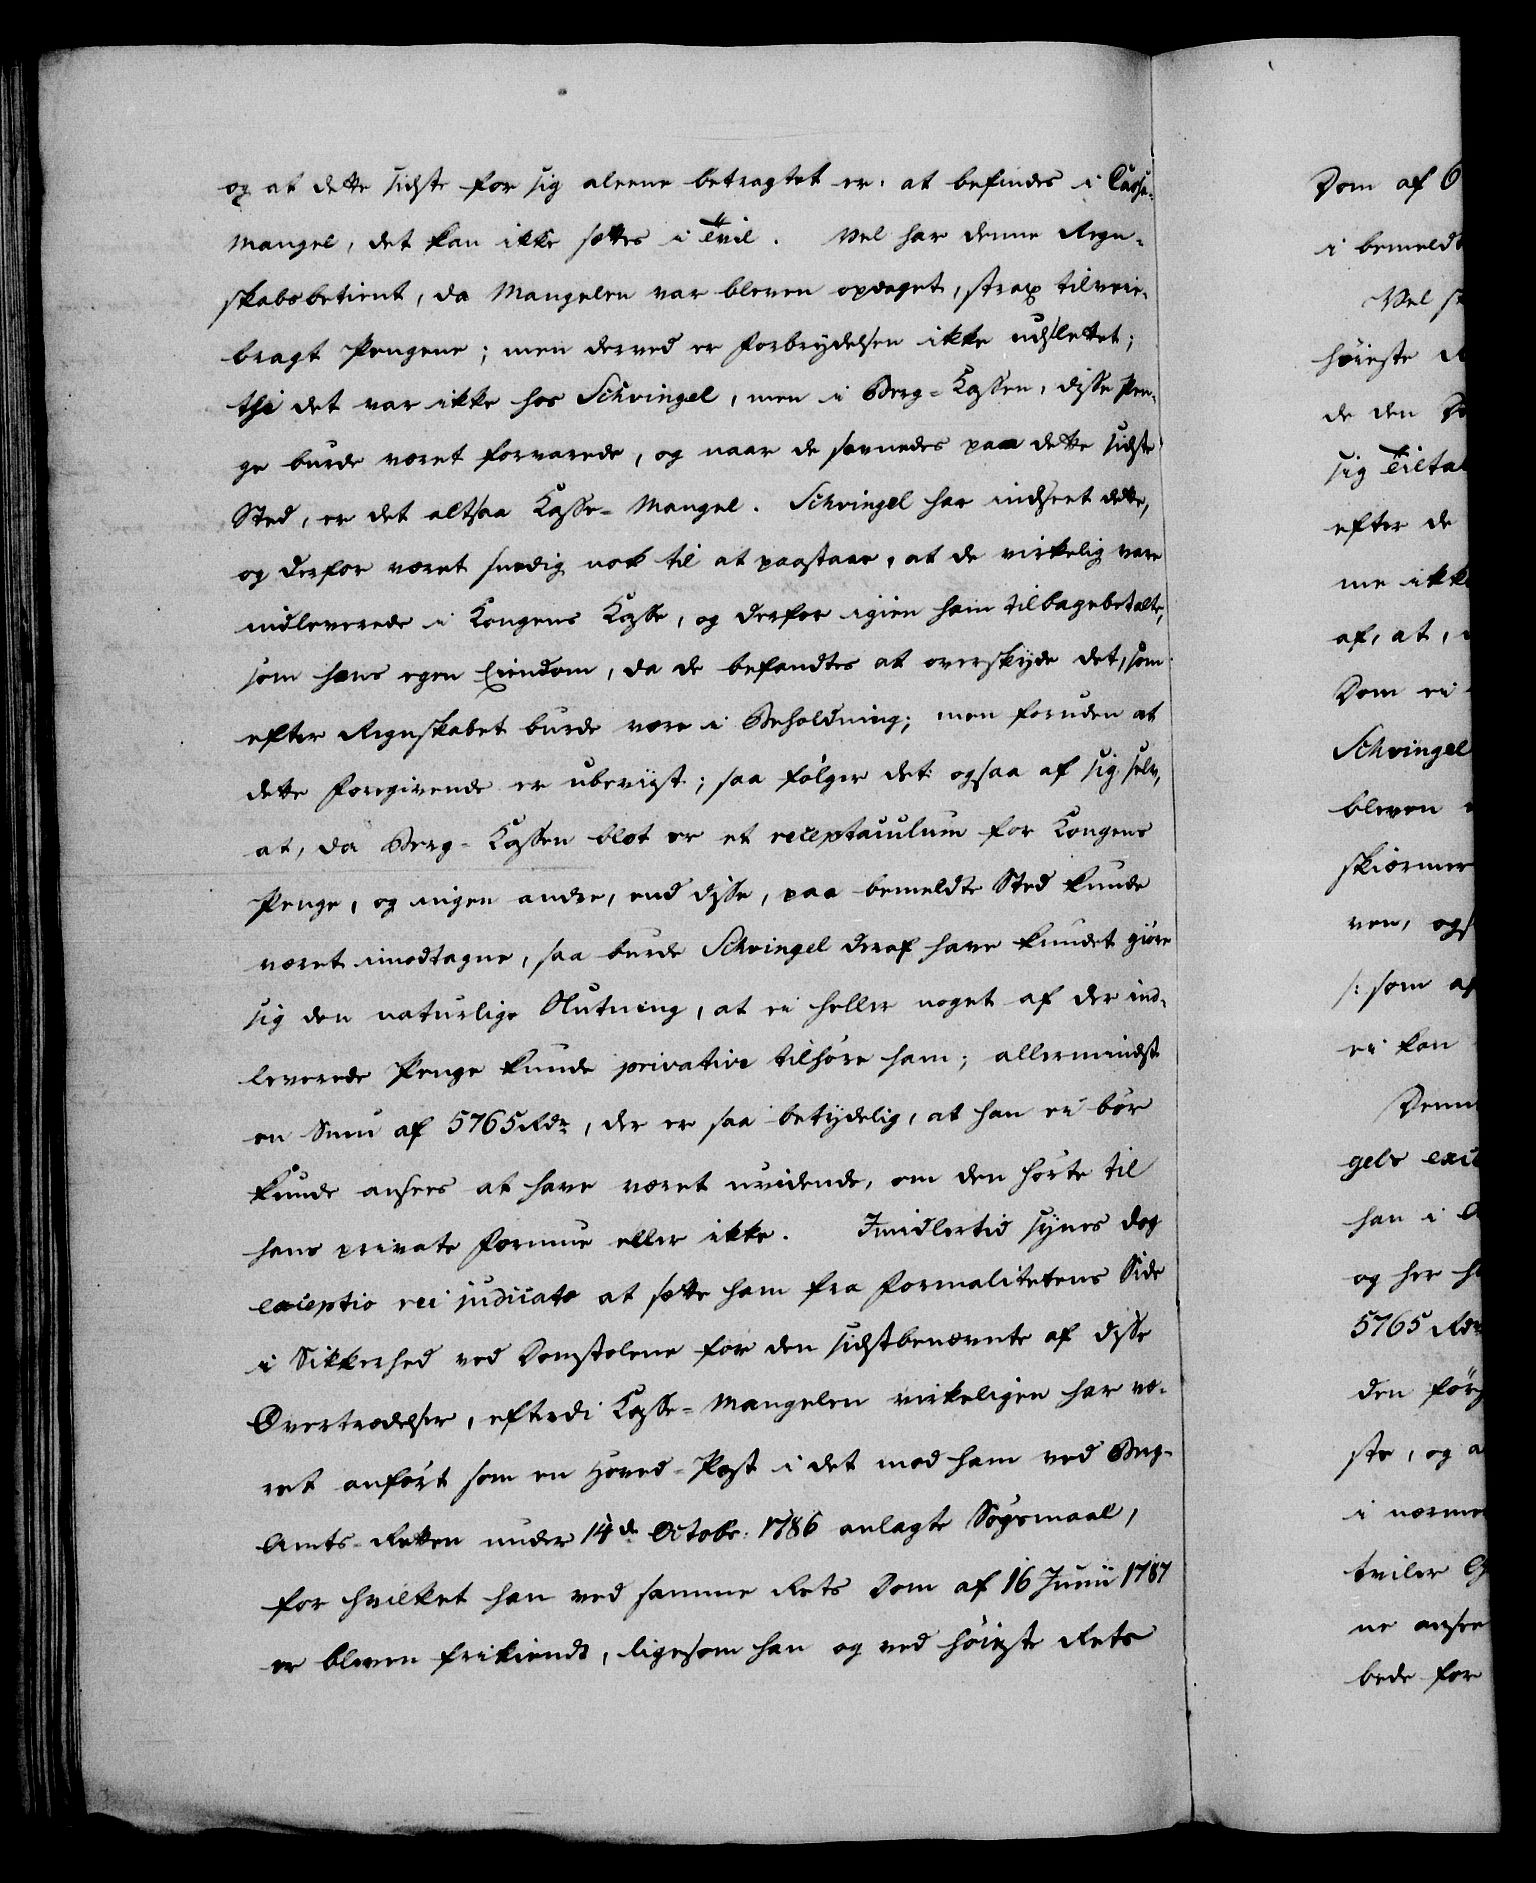 og at dette sidste for sig aleene betragtet er: at befindes i Casse-
Mangel, det kan ikke sættes i Tvil. Vel har denne Regn-
skabsbetient, da Mangelen var bleven opdaget, strax tilveie-
bragt Pengene; men derved er Forbrydelsen ikke udslettet;
thi det var ikke hos Schvingel, men i Berg-Kassen, disse Pen-
ge burde været forvarede, og naar de savnedes paa dette sidste
Sted, er det altsaa Kasse-Mangel. Schvingel har indseet dette,
og derfor været snedig nok til at paastaae, at de virkelig vare
indleverede i Kongens Kasse, og derfor igien ham tilbagebetalte,
som hans egen Eiendom, da de befandtes at overskyde det, som
efter Regnskabet burde være i Beholdning; men foruden at
dette Foregivende er ubeviist; saa følger det ogsaa af sig selv,
at, da Berg-Kassen blot er et receptaculum for Kongens
Penge, og ingen andre, end disse, paa bemeldte Sted kunde
været imodtagne, saa burde Schvingel deraf have kundet giøre
sig den naturlige Slutning, at ei heller noget af der ind-
leverede Penge kunde privative tilhøre ham; allermindst
en Sum af 5765 Rdr, der er saa betydelig, at han ei bør
kunde ansees at have været uvidende, om den hørte til
hans private Formue eller ikke. Imidlertid synes dog
exceptio rei judicatæ at sætte ham fra Formalitetens Side
i Sikkerhed ved Domstolene for den sidstbenævnte af disse
Overtrædelser, efterdi Kasse-Mangelen virkeligen har væ-
ret anført som en Hoved-Post i det mod ham ved Berg-
Amts-Retten under 14de Octobr: 1786 anlagte Søgsmaal,
for hvilket han ved samme Rets Dom af 16 Junii 1787
er bleven frikiendt, ligesom han og ved høieste Rets
Dom af 6
i bemeldt
Vel
høieste
de den
sig Tiltal
efter de
me ikke
af, at,
Dom ei
Schvingel
bleven
skiermer
ven, ogs
/: som af
ei kan
Denn
gels exce
han i
og her
5765 Rdr
den før
ste, og a
i nærme
tviler
ne ansee
bede for